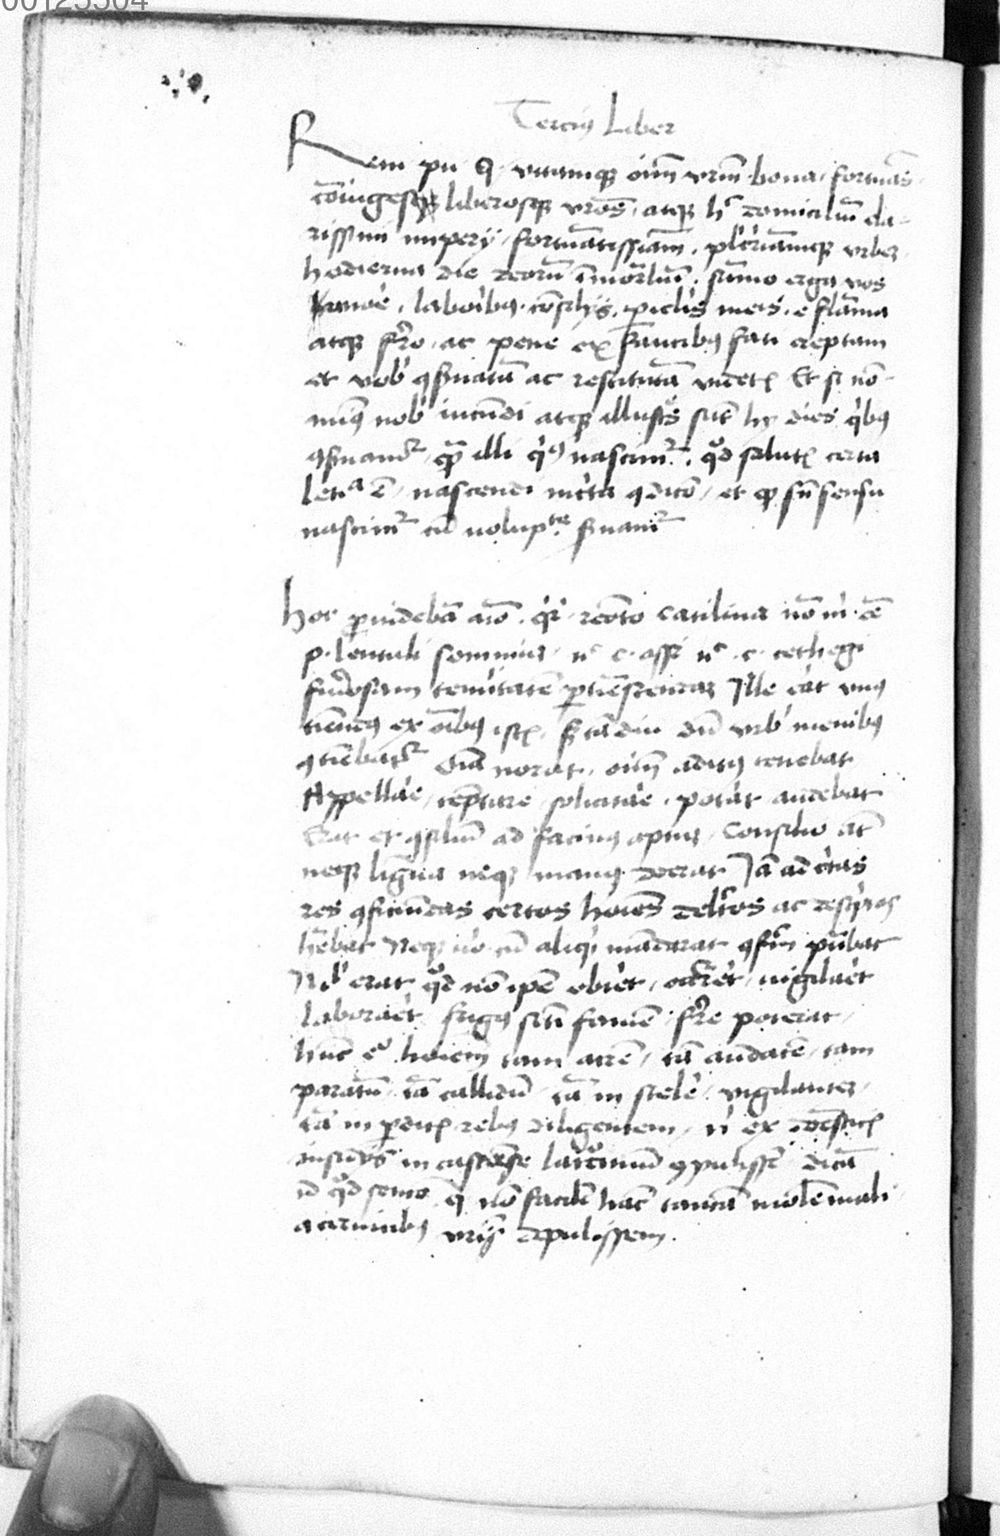 00125304
Tercius Liber
Rem pu. Q. vitamque oim vrm bona fortunas
coniugesque liberosque vros. atque hc domiciliu cla-
rissimi imperij. fortunatissiam. plcriamque vrbez
hodierna die deoru immortliu. summo erga vos
amore. laboibus. consilijs. periclis meis. e flama
atque frro. ac pene ex faucibus fati ereptam
et vob conseruata ac restituta videtis Et si no
minus nob iucudi atque illustres sut hij dies quibus
conseruamur. qua illi quibus nascimur. quod salutis certa
letia e. nascendi incta condicio. et quod sn sensu
nascimur cu voluptte seruamur
hoc prouideba aio. quir. remoto Catilina no m. ee
p. lentuli somnium. nc. c. assi nc. c. cethegi
furiosam temitate ptimescendaz Ille eat vnus
timendus ex oibus istis. sz ta diu du vrb menibus
contiebatur Oia norat. oim aditus tenebat
Appellae. teptare. solicitae. potat audebat
Erat et consiliu ad facinus aptuz. Consilio at
neque lingua neque manus deerat Ia ad ctas
res conficiendas certos hoies delctos ac descptos
hebat Neque vo cu aliqd mandarat confm putabat
Nil erat quod no ipe obiet. occrret. vigilaet
laboraet frigus siti fame frre poterat.
hunc ego hoiem tam acre. ta audace. tam
paratu. ta callidu. ta in scele. vigilantez.
ta in perditis rebus diligentem. ni ex domesticis
insidiis in castense latrociniu compulisse. dica
id quod sencio. q no facile hac tanta mole mali
a ceruicibus vris depulissem.